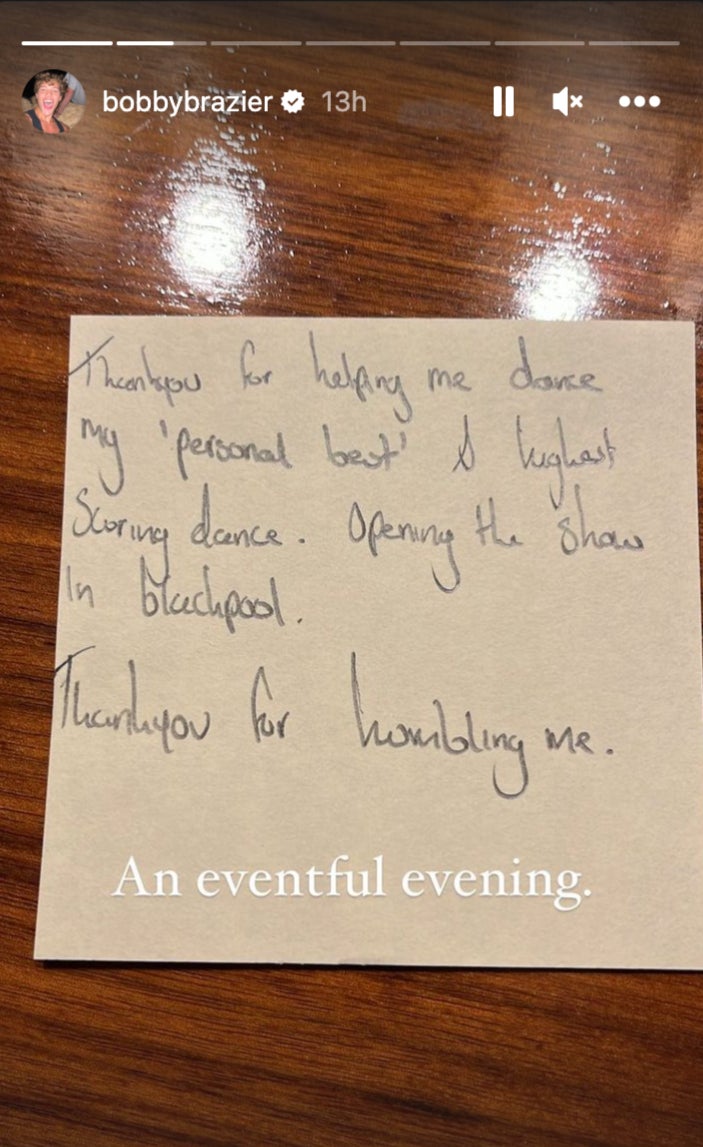 bobbybrazier 13h
Thankyou for helping me dance
my 'personal best' & highest
Scoring dance. Opening the show
In blackpool.
Thankyou for humbling me.
An eventful evening.